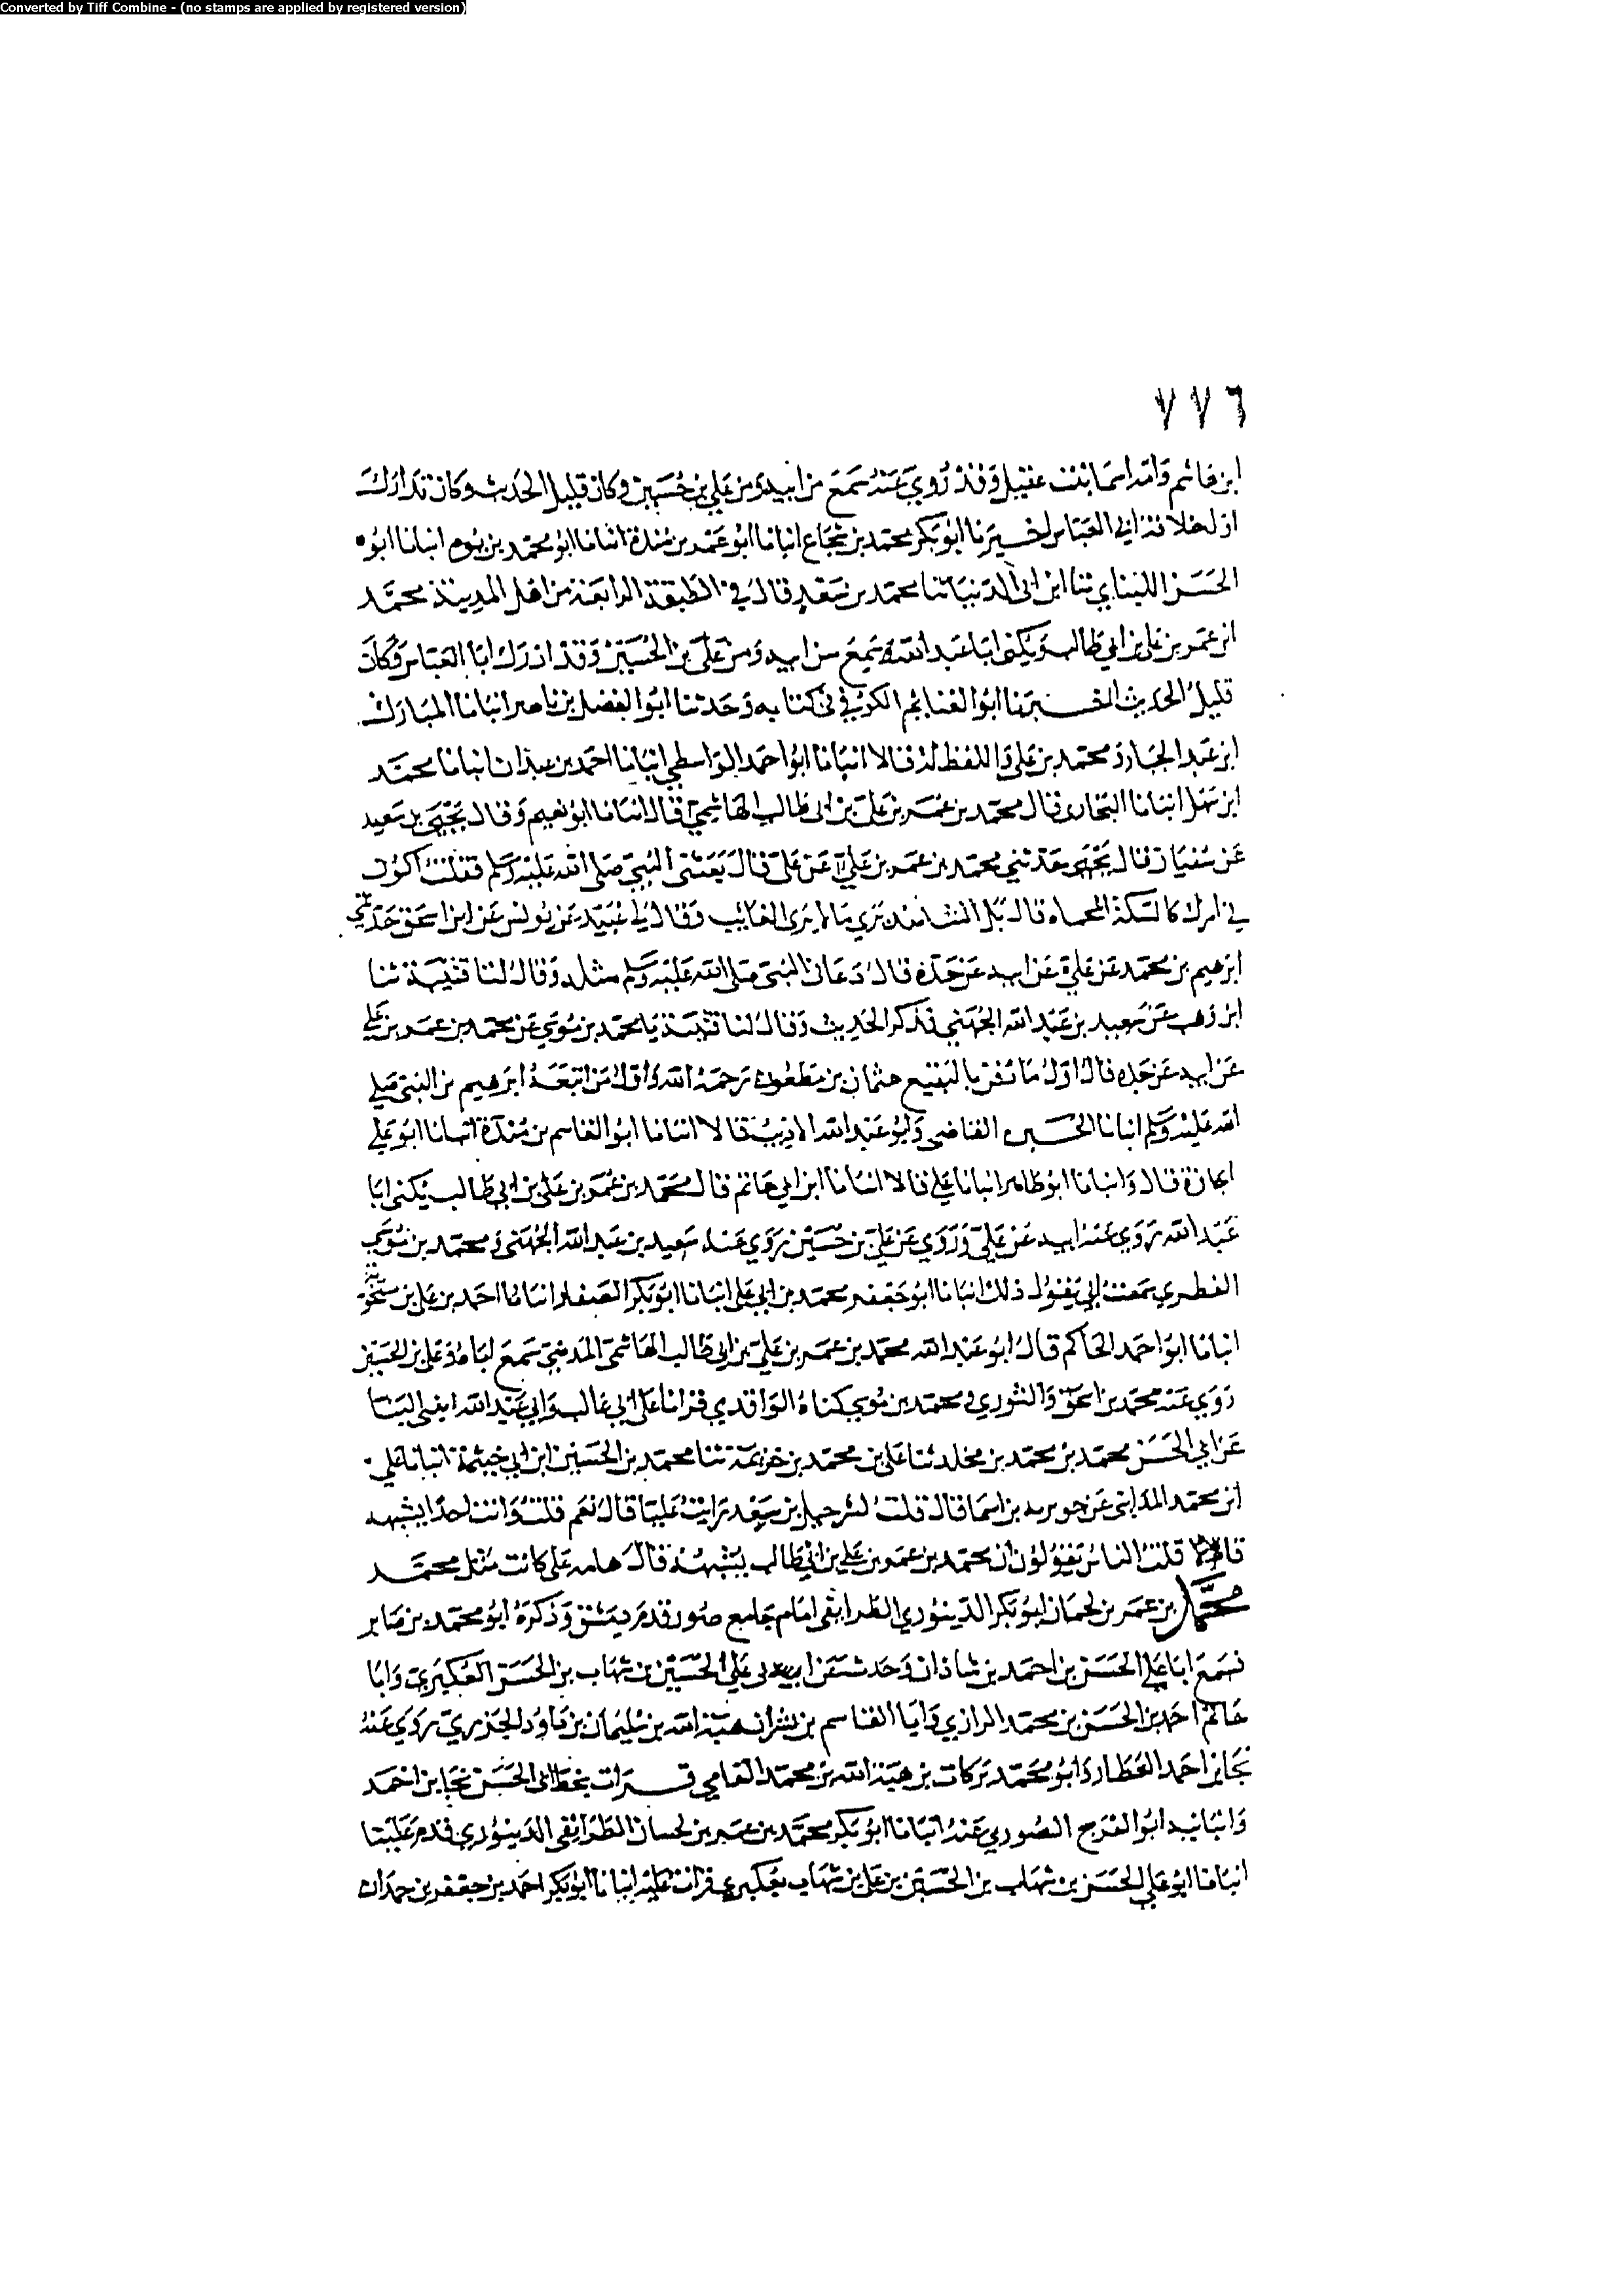 Converted by Tiff Combine - (no stamps are applied by registered version)
٧٧٦
ابن هاشم وامه اسما بنت عقيل وقد روي عنه سمع من ابيه ومن علي بن حسين وكان قليل الحديث وكان قد ادرك
اول خلافة ابي العباس اخبرنا ابو بكر محمد بن شجاع انبانا ابو عمرو بن مندة انبانا ابو محمد بن يوه انبانا ابو
الحسن اللنباني ثنا ابن ابي الدنيا ثنا محمد بن سعد قال في الطبقة الرابعة من اهل المدينة محمد
ابن عمر بن علي بن ابي طالب ويكنى ابا عبد الله سمع من ابيه ومن علي بن الحسين وقد ادرك ابا العباس وكان
قليل الحديث اخبرنا ابو الغنايم الكوفي في كتابه وحدثنا ابو الفضل بن ناصر انبانا المبارك
ابن عبد الجبار ومحمد بن علي واللفظ له قالا انبانا ابو احمد الواسطي انبانا احمد بن عبدان انبانا محمد
ابن سهل انبانا البخاري قال محمد بن عمر بن علي بن ابي طالب الهاشمي قال انبانا ابو نعيم وقال يحيى بن سعيد
عن سفيان قال يحيى حدثني محمد بن عمر بن علي عن علي قال بعثني النبي صلى الله عليه وسلم فقلت اكون
في امرك كالسكة المحماه قال بل الشاهد يرى ما لا يرى الغايب وقال لي عبيد عن يونس عن ابن اسحق حدثني
ابرهيم بن محمد عن علي عن ابيه عن جده قال دعاني النبي صلى الله عليه وسلم مثله وقال لنا قتيبة ثنا
ابن وهب عن سعيد بن عبد الله الجهني فذكر الحديث وقال لنا قتيبة يا محمد بن موسي عن محمد بن عمر بن علي
عن ابيه عن جده قال اول ما دفن بالبقيع عثمان بن مظعون رحمه الله واول من اتبعه ابرهيم بن النبي صلي
الله عليه وسلم انبانا الحسين القاضي وابو عبد الله الاديب قالا انبانا ابو القاسم بن مندة انبانا ابو علي
اجازة قال وانبانا ابو طاهر انبانا علي قالا انبانا ابن ابي حاتم قال محمد بن عمر بن علي بن ابي طالب يكنى ابا
عبد الله روي عن ابيه عن علي وروي عن علي بن حسين روي عنه سعيد بن عبد الله الجهني ومحمد بن موسي
الفطري سمعت ابي يقول ذلك انبانا ابو جعفر محمد بن ابي علي انبانا ابو بكر الصفار انبانا احمد بن علي بن منجويه
انبانا ابو احمد الحاكم قال ابو عبد الله محمد بن عمر بن علي بن ابي طالب الهاشمي المدني سمع اباه وعلي بن الحسين
روي عنه محمد بن اسحق والثوري ومحمد بن موسي كناه الواقدي قرانا على ابي غالب وابي عبد الله ابني البنا
عن ابي الحسن محمد بن محمد بن مخلد ثنا علي بن محمد بن خزيمة ثنا محمد بن الحسين ابن ابي خيثمة انبانا علي
ابن محمد المدايني عن جويريه بن اسما قال قلت لشرحبيل بن سعد رايت عليا قال نعم قلت وانت احدا يشبهه
قال لا قلت الناس يقولون ان محمد بن عمر بن علي بن ابي طالب يشبهه قال هامه علي كانت مثل محمد
محمد بن عمر بن لحسان ابو بكر الدينوري الطرايفي امام جامع صور قدم دمشق وذكره ابو محمد بن صابر
سمع ابا علي الحسن بن احمد بن شاذان وحدث عن ابي علي الحسين بن شهاب بن الحسن العكبري وابا
حاتم احمد بن الحسن بن محمد الرازي وابا القاسم بن بشران هبة الله بن سليمان بن داود الجزري روي عنه
نجا بن احمد العطار وابو محمد بركات بن هبة الله بن محمد الفامي قرات بخط ابي الحسن نجا بن احمد
وانبانيه ابو الفرج الصوري عنه انبانا ابو بكر محمد بن عمر بن لحسان الطرايفي الدينوري قدم علينا
انبانا ابو علي الحسن بن شهاب بن الحسين بن علي بن شهاب بعكبري قراة عليه انبانا ابو بكر احمد بن جعفر بن حمدان